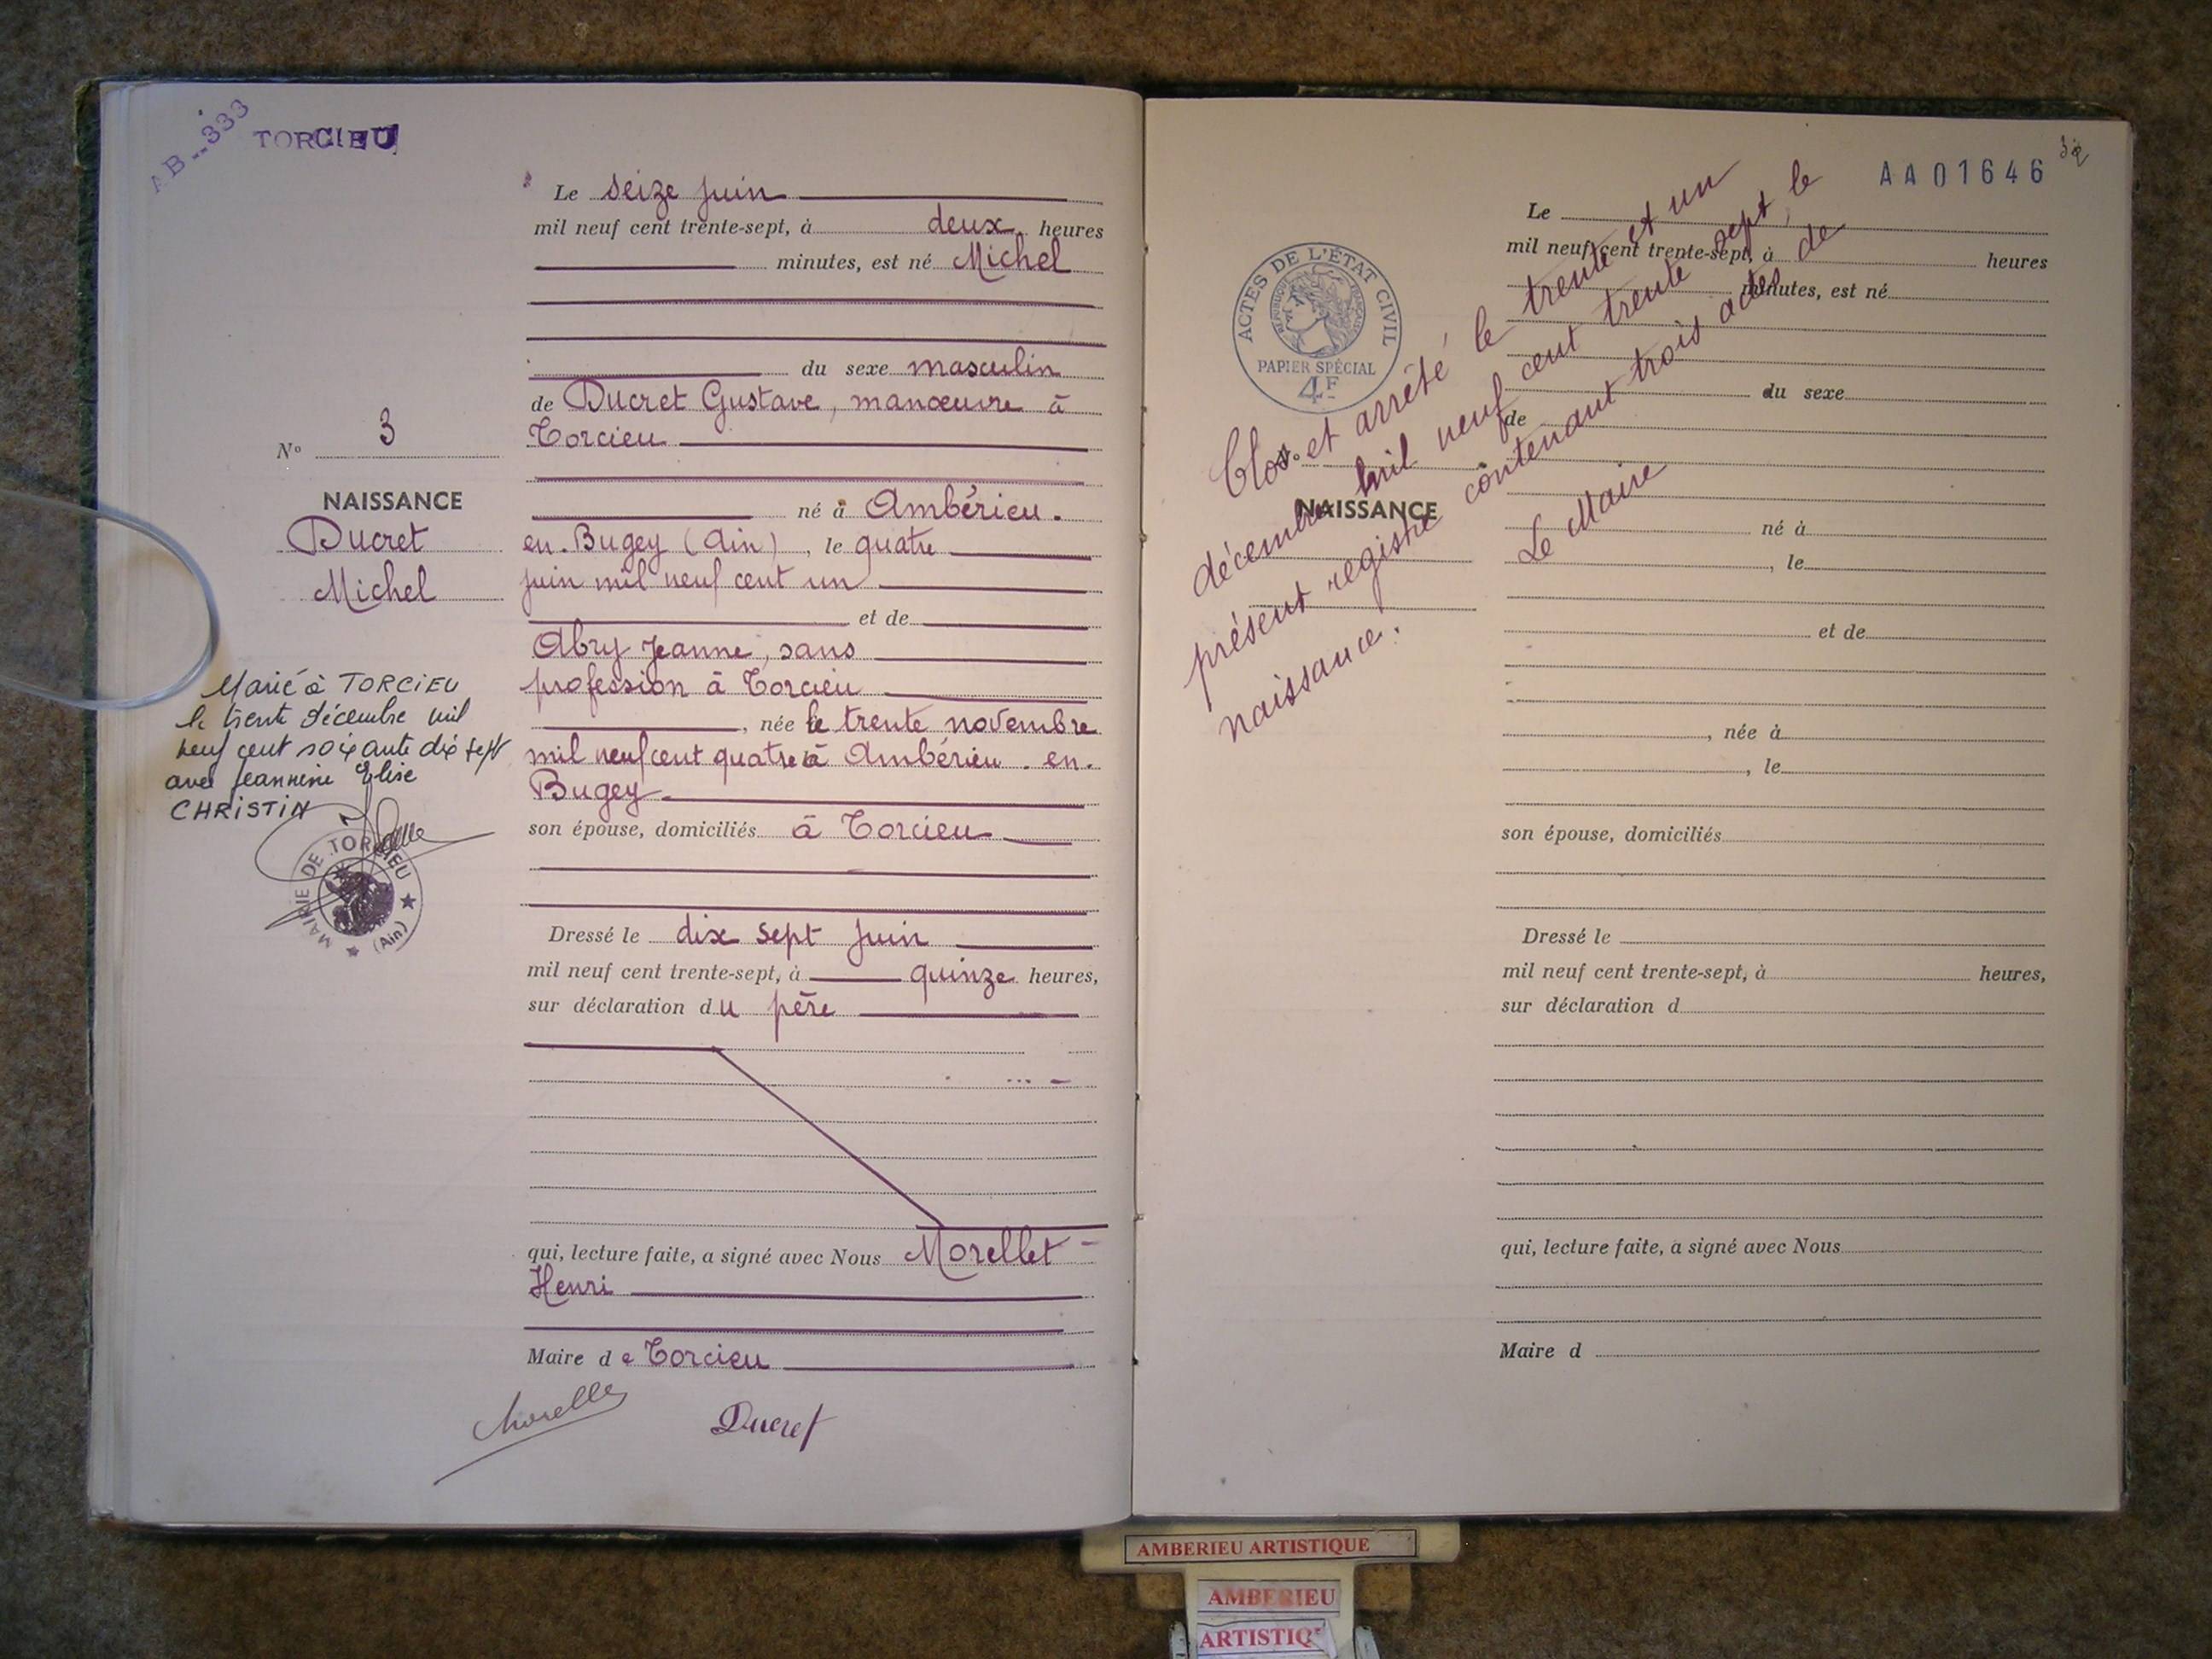 AB--333
TORCIEU
Le seize juin
mil neuf cent trente-sept, à deux heures
minutes, est né Michel
du sexe masculin
de Ducret Gustave, manœuvre à
Torcieu
Nº 3
NAISSANCE
Ducret
Michel
né à Ambérieu.
en.Bugey (Ain), le quatre
juin mil neuf cent un
et de
Abry Jeanne, sans
profession à Torcieu
, née le trente novembre
mil neuf cent quatre à Ambérieu.en.
Bugey
son épouse, domiciliés à Torcieu
Marié à TORCIEU
le trente décembre mil
neuf cent soixante dix sept
avec Jeannine Elise
CHRISTIN
MAIRIE DE TORCIEU
(Ain)
Dressé le dix sept juin
mil neuf cent trente-sept, à quinze heures,
sur déclaration du père
qui, lecture faite, a signé avec Nous Morellet
Henri
Maire de Torcieu
Morellet
Ducret
AA01646
32
ACTES DE L'ÉTAT CIVIL
RÉPUBLIQUE FRANÇAISE
PAPIER SPÉCIAL
4F
Clos et arrêté le trente et un
décembre mil neuf cent trente sept, le
présent registre contenant trois actes de
naissance.
Le Maire
Le
mil neuf cent trente-sept, à heures
minutes, est né
du sexe
de
Nº
NAISSANCE
né à
, le
et de
, née à
, le
son épouse, domiciliés
Dressé le
mil neuf cent trente-sept, à heures,
sur déclaration d
qui, lecture faite, a signé avec Nous
Maire d
AMBERIEU ARTISTIQUE
AMBERIEU
ARTISTIQ